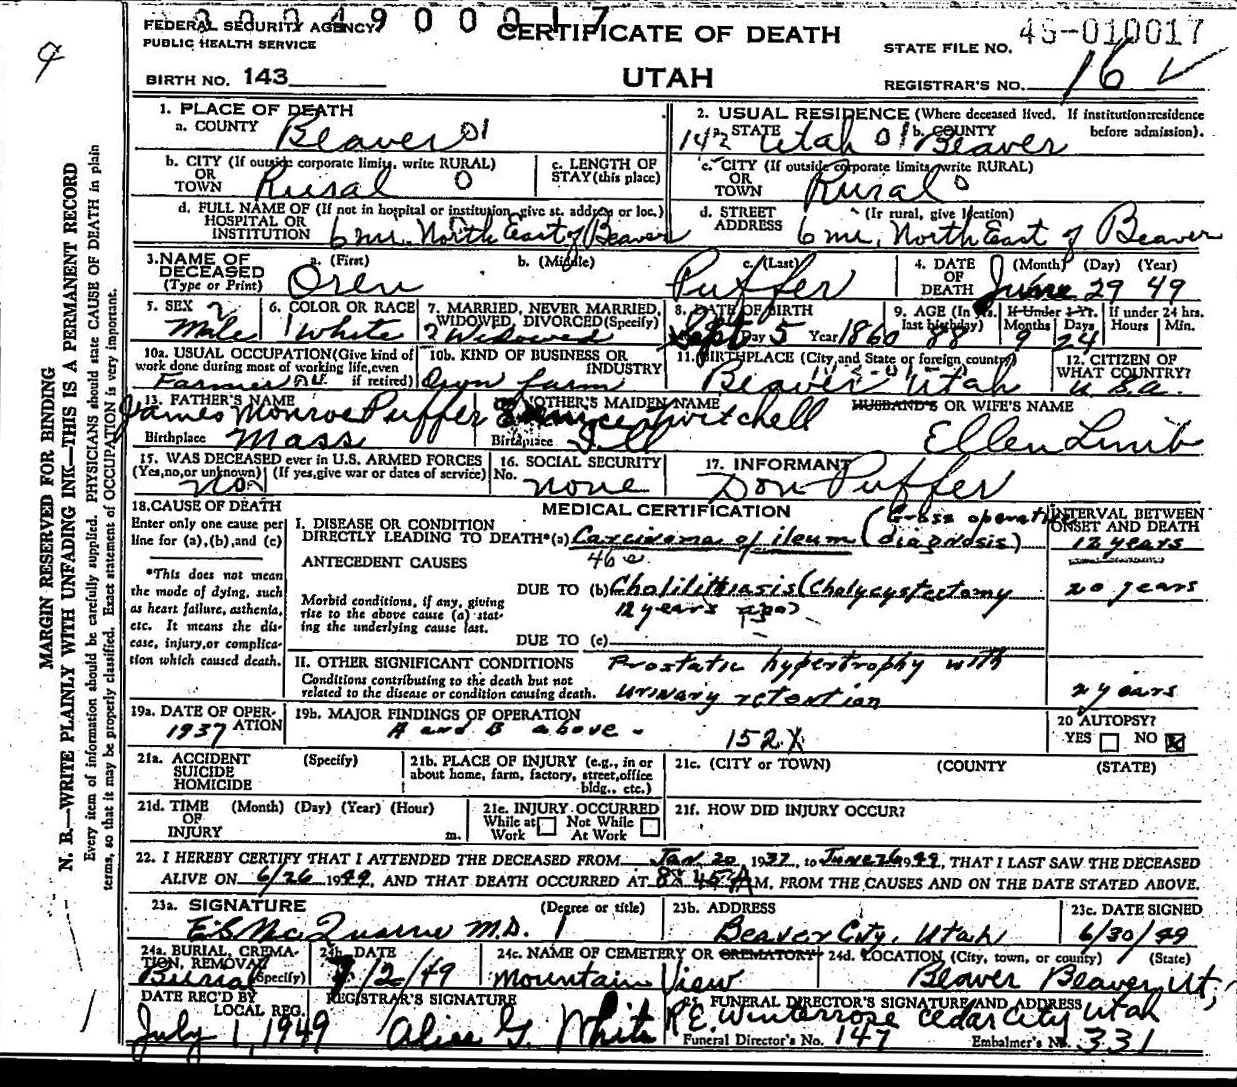 3 0 0 4 9 0 0 0 1 7
FEDERAL SECURITY AGENCY
PUBLIC HEALTH SERVICE
CERTIFICATE OF DEATH
STATE FILE NO. 49-010017
BIRTH NO. 143
UTAH
REGISTRAR'S NO. 16 ✓
MARGIN RESERVED FOR BINDING
N. B.—WRITE PLAINLY WITH UNFADING INK—THIS IS A PERMANENT RECORD
Every item of information should be carefully supplied. PHYSICIANS should state CAUSE OF DEATH in plain
terms, so that it may be properly classified. Exact statement of OCCUPATION is very important.
1. PLACE OF DEATH
a. COUNTY Beaver 01
2. USUAL RESIDENCE (Where deceased lived. If institution: residence
before admission).
STATE Utah 01 b. COUNTY Beaver
b. CITY (If outside corporate limits, write RURAL)
OR
TOWN Rural 0
c. LENGTH OF
STAY (this place)
c. CITY (If outside corporate limits, write RURAL)
OR
TOWN Rural 0
d. FULL NAME OF (If not in hospital or institution, give st. address or loc.)
HOSPITAL OR
INSTITUTION 6 mi. North East of Beaver
d. STREET (If rural, give location)
ADDRESS 6 mi. North East of Beaver
3. NAME OF DECEASED (Type or Print)
a. (First) b. (Middle) c. (Last)
Oren Puffer
4. DATE OF DEATH (Month) (Day) (Year)
June 29 49
5. SEX Male
6. COLOR OR RACE White
7. MARRIED, NEVER MARRIED, WIDOWED, DIVORCED (Specify) Widowed
8. DATE OF BIRTH Sept Day 5 Year 1860
9. AGE (In Yrs. last birthday) 88
If Under 1 Yr. Months 9 Days 24
If under 24 hrs. Hours Min.
10a. USUAL OCCUPATION (Give kind of work done during most of working life, even if retired) Farmer
10b. KIND OF BUSINESS OR INDUSTRY Own farm
11. BIRTHPLACE (City, and State or foreign country) Beaver Utah
12. CITIZEN OF WHAT COUNTRY? U.S.A.
13. FATHER'S NAME James Monroe Puffer
Birthplace Mass
MOTHER'S MAIDEN NAME Twitchell
Birthplace Ill
HUSBAND'S OR WIFE'S NAME
Ellen
15. WAS DECEASED ever in U.S. ARMED FORCES
(Yes, no, or unknown) (If yes, give war or dates of service) No
16. SOCIAL SECURITY No. none
17. INFORMANT Don Puffer
18. CAUSE OF DEATH
Enter only one cause per
line for (a), (b), and (c)
*This does not mean
the mode of dying, such
as heart failure, asthenia,
etc. It means the dis-
ease, injury, or complica-
tion which caused death.
MEDICAL CERTIFICATION
INTERVAL BETWEEN
ONSET AND DEATH
I. DISEASE OR CONDITION
DIRECTLY LEADING TO DEATH*(a) Carcinoma of ileum (Gross operative diagnosis) 12 years
46e
ANTECEDENT CAUSES
Morbid conditions, if any, giving
rise to the above cause (a) stat-
ing the underlying cause last.
DUE TO (b) Cholilithiasis (Cholycystectomy 20 years
12 years ago)
DUE TO (c)
II. OTHER SIGNIFICANT CONDITIONS
Conditions contributing to the death but not
related to the disease or condition causing death.
Prostatic hypertrophy with
urinary retention 2 years
19a. DATE OF OPERATION 1937
19b. MAJOR FINDINGS OF OPERATION
A and B above.
152X
20 AUTOPSY?
YES NO X
21a. ACCIDENT
SUICIDE
HOMICIDE
(Specify)
21b. PLACE OF INJURY (e.g., in or
about home, farm, factory, street, office
bldg., etc.)
21c. (CITY or TOWN) (COUNTY) (STATE)
21d. TIME (Month) (Day) (Year) (Hour)
OF
INJURY m.
21e. INJURY OCCURRED
While at Work Not While At Work
21f. HOW DID INJURY OCCUR?
22. I HEREBY CERTIFY THAT I ATTENDED THE DECEASED FROM Jan. 20, 1937, to June 26 1949, THAT I LAST SAW THE DECEASED
ALIVE ON 6/26 1949, AND THAT DEATH OCCURRED AT 8:45 A M. FROM THE CAUSES AND ON THE DATE STATED ABOVE.
23a. SIGNATURE (Degree or title)
M.D.
23b. ADDRESS
Beaver City, Utah
23c. DATE SIGNED
6/30/49
24a. BURIAL, CREMATION, REMOVAL (Specify) Burial
24b. DATE 7/2/49
24c. NAME OF CEMETERY OR CREMATORY
Mountain View
24d. LOCATION (City, town, or county) (State)
Beaver Beaver Ut,
DATE REC'D BY
LOCAL REG.
July 1, 1949
REGISTRAR'S SIGNATURE
Alice G. White
25. FUNERAL DIRECTOR'S SIGNATURE AND ADDRESS
R.E. Winterrose Cedar City Utah
Funeral Director's No. 147
Embalmer's No. 331